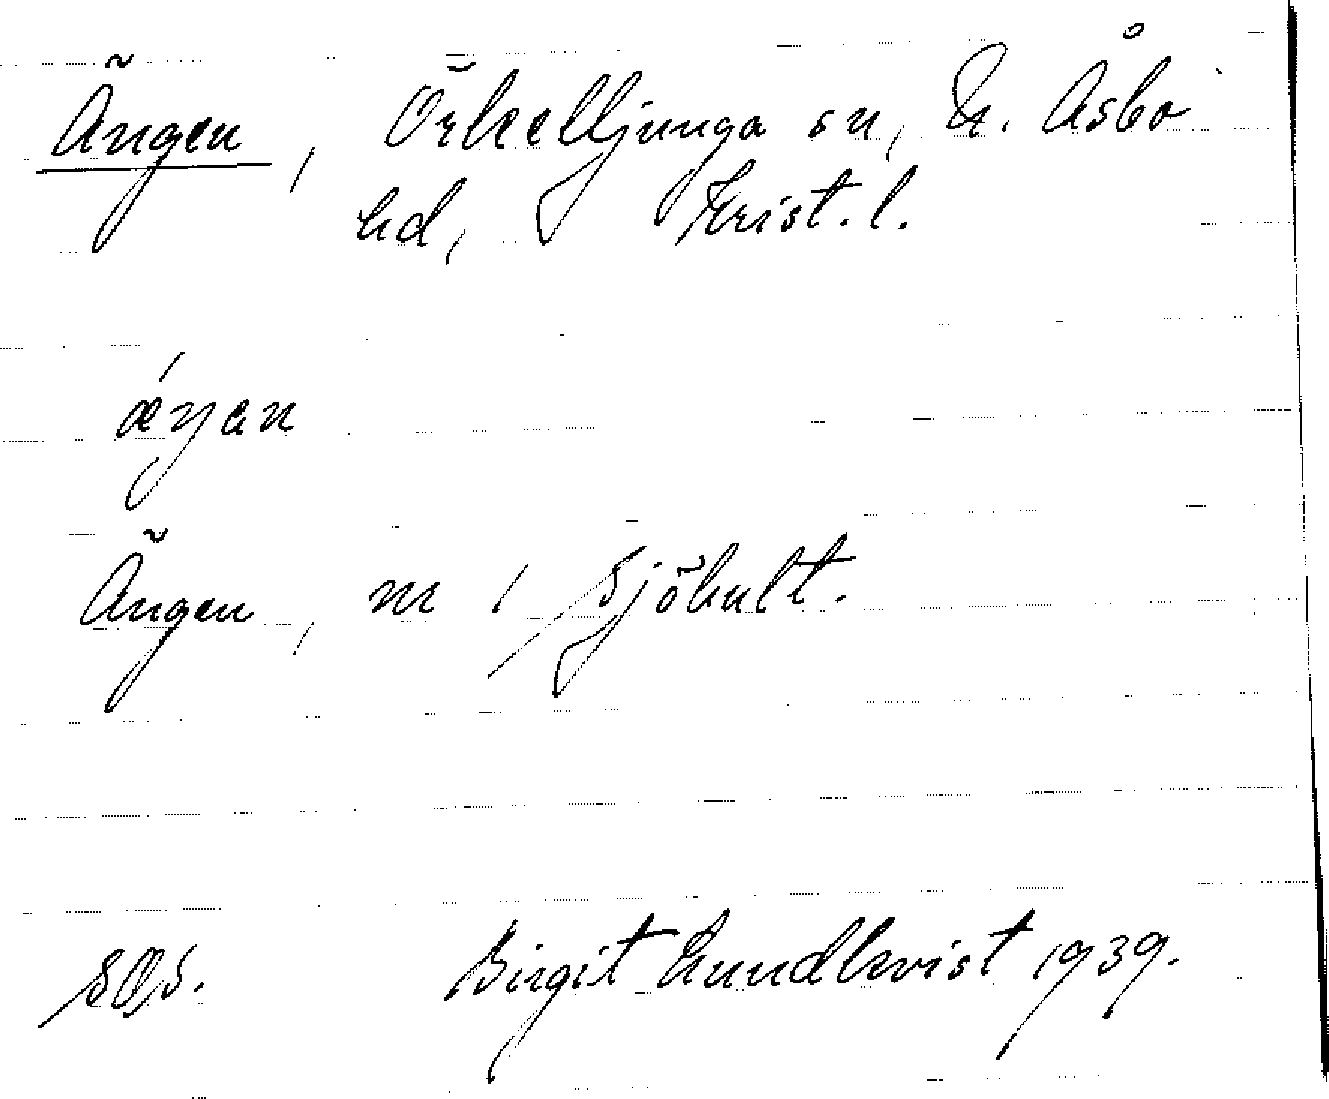 Ängen, Örkelljunga sn, N. Åsbo
hd, Krist. l.
ǽŋan
Ängen, m i Sjöhult.
Birgit Lundkvist 1939.